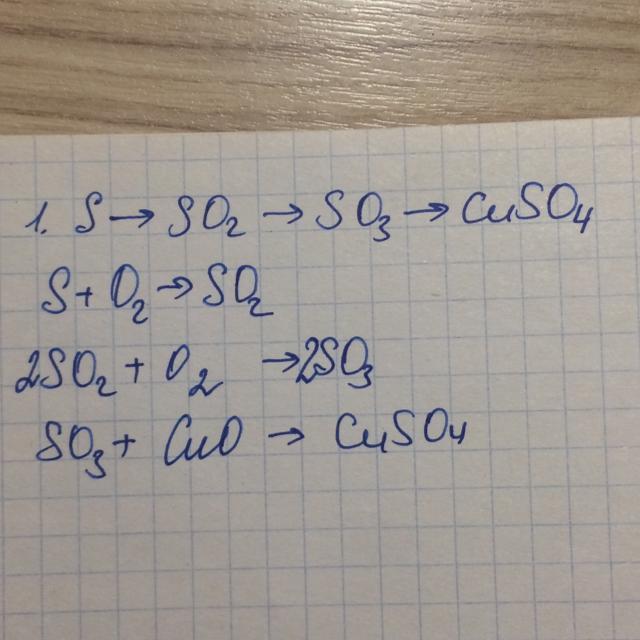 1. S → SO₂ → SO₃ → CuSO₄
S + O₂ → SO₂
2SO₂ + O₂ → 2SO₃
SO₃ + CuO → CuSO₄